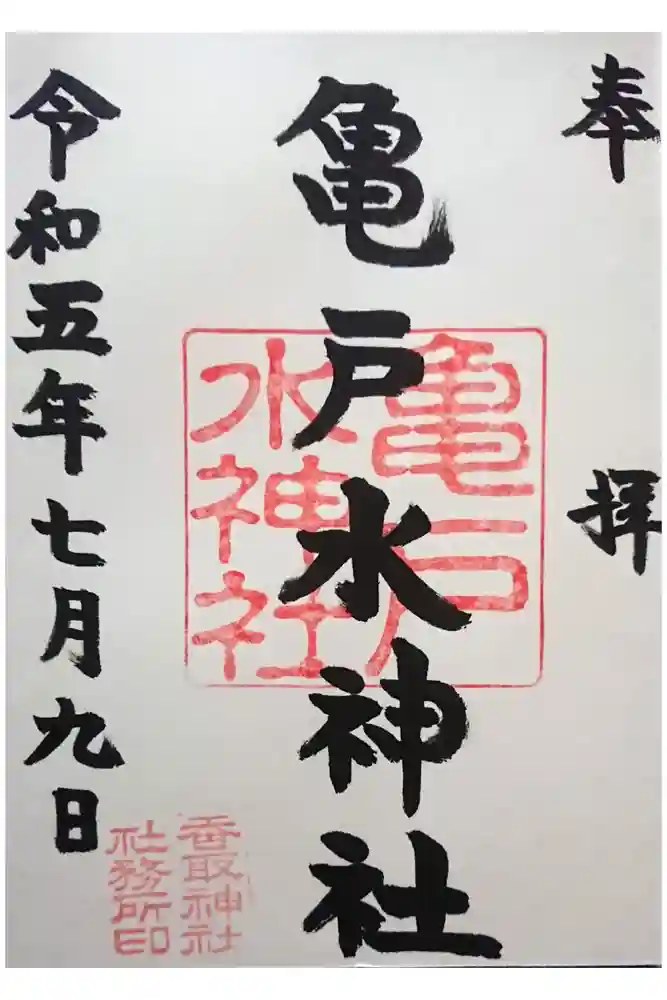 奉拝
亀戸水神社
令和五年七月九日
亀戸
水神社
香取神社
社務所印